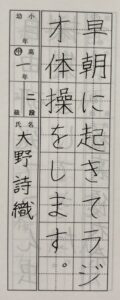 早朝に起きてラジ
オ体操をします。
小幼高中年 一年 二段級 氏名 大野詩織